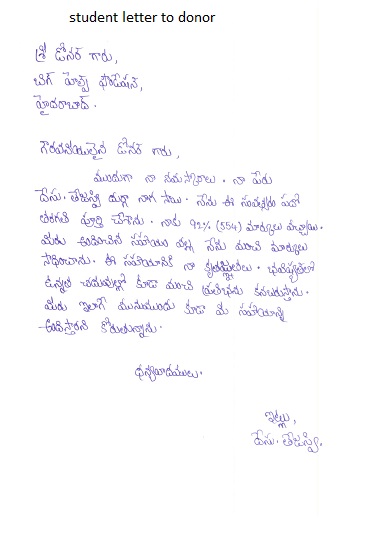 student letter to donor
శ్రీ డోనర్ గారు,
బిగ్ హెల్ప్ ఫౌండేషన్,
హైదరాబాద్.
గౌరవనీయులైన డోనర్ గారు,
ముందుగా నా నమస్కారాలు. నా పేరు
దేసు. తేజస్వి దుర్గా నాగ సాయి. నేను ఈ సంవత్సరం పదో
తరగతి పూర్తి చేశాను. నాకు 92% (554) మార్కులు వచ్చాయి.
మీరు అందించిన సహాయం వల్ల నేను మంచి మార్కులు
సాధించాను. ఈ సహాయానికి నా కృతజ్ఞతలు. భవిష్యత్‌లో
ఉన్నత చదువుల్లో కూడా మంచి ప్రతిభను కనబరుస్తాను.
మీరు ఇలాగే మునుముందు కూడా మీ సహాయాన్ని
అందిస్తారని కోరుతున్నాను.
ధన్యవాదములు.
ఇట్లు,
దేసు. తేజస్వి.